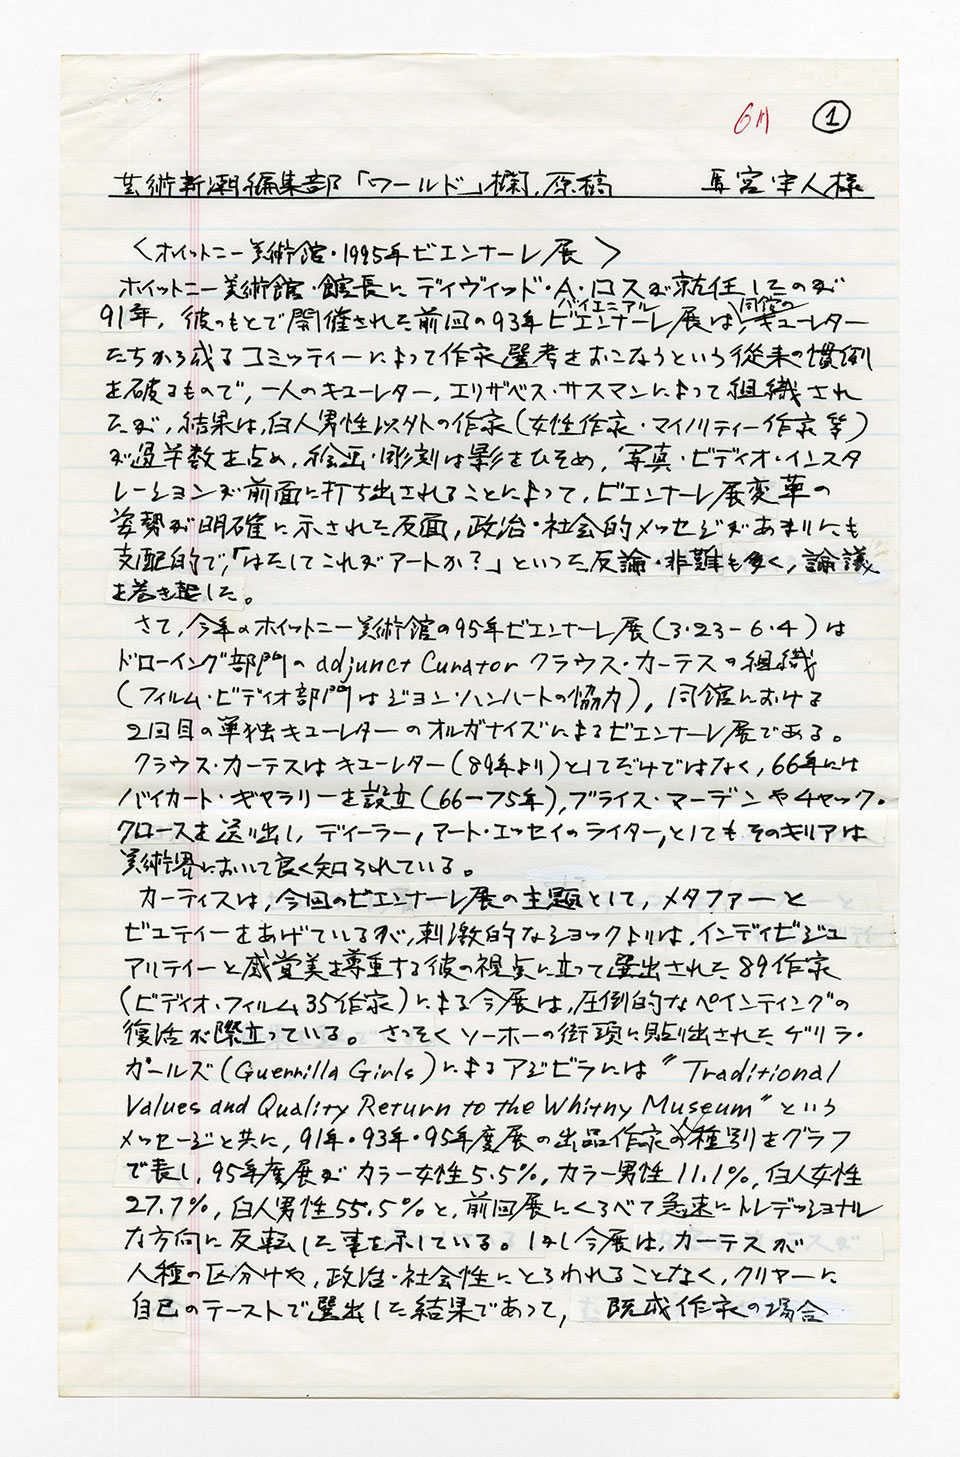 6月 ①
芸術新潮編集部「ワールド」欄,原稿 馬宮宰人様
〈ホイットニー美術館・1995年ビエンナーレ展〉
ホイットニー美術館・館長に ディヴィッド・A・ロスが就任したのが
バイエニアル 同館の
91年, 彼のもとで開催された前回の93年ビエンナーレ展は,キューレター
たちから成るコミッティーによって作家選考をおこなうという従来の慣例
を破るもので,一人のキューレター,エリザベス・サスマンによって組織され
たが,結果は,白人男性以外の作家(女性作家・マイノリティー作家等)
が過半数を占め,絵画・彫刻は影をひそめ,写真・ビディオ・インスタ
レーションが前面に打ち出されることによって,ビエンナーレ展変革の
姿勢が明確に示された反面,政治・社会的メッセージがあまりにも
支配的で,「はたしてこれがアートか?」といった反論・非難も多く,論議
を巻き起した。
さて,今年のホイットニー美術館の95年ビエンナーレ展(3・23-6・4)は
ドローイング部門の adjunct Curator クラウス・カーテスの組織
(フィルム・ビディオ部門はジョン・ハンハートの協力),同館における
2回目の単独キューレターのオルガナイズによるビエンナーレ展である。
クラウス・カーテスはキューレター(89年より)としてだけではなく,66年には
バイカート・ギャラリーを設立(66-75年),ブライス・マーデンやチャック・
クロースを送り出し,ディーラー,アート・エッセイのライター,としてもそのキリアは
美術界において良く知られている。
カーティスは,今回のビエンナーレ展の主題として,メタファーと
ビュティーをあげているが,刺激的なショックよりは,インディビジュ
アリティーと感覚美を尊重する彼の視点に立って選出された89作家
(ビディオ・フィルム35作家)による今展は,圧倒的なペインティングの
復活が際立っている。さっそくソーホーの街頭に貼り出されたゲリラ・
ガールズ(Guerrilla Girls)によるアジビラには “Traditional
Values and Quality Return to the Whitny Museum” という
メッセージと共に,91年・93年・95年度展の出品作家の種別をグラフ
で表し,95年度展がカラー女性5.5%,カラー男性11.1%,白人女性
27.7%,白人男性55.5%と,前回展にくらべて急速にトレデッショナル
な方向に反転した事を示している。しかし今展は,カーテスが
人種の区分けや,政治・社会性にとらわれることなく,クリヤーに
自己のテーストで選出した結果であって, 既成作家の場合